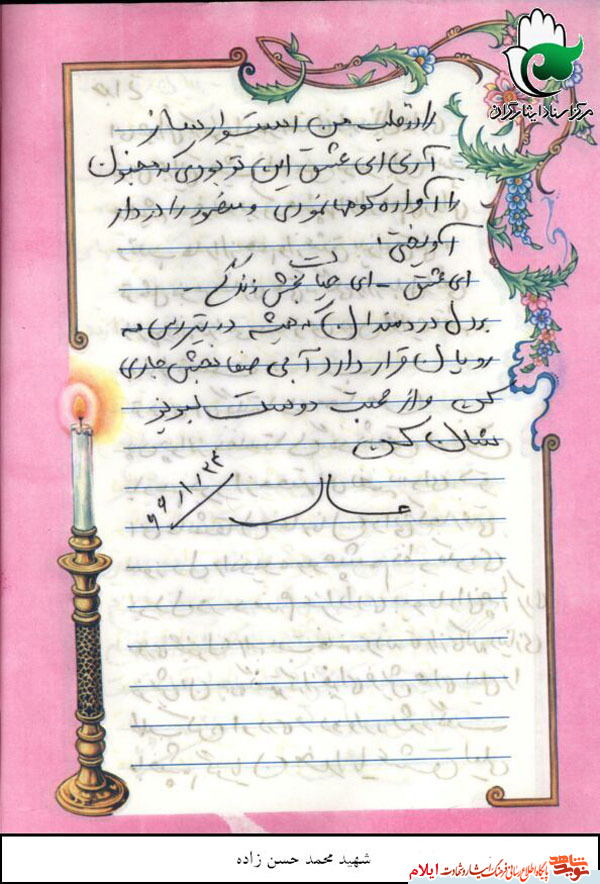 مرکز اسناد ایثارگران
را در قلب من استوار ساز
آری ای عشق این تو بودی که مجنون
را آواره کوهها نمودی و منصور را در دار
آویختی!
ای عشق - ای حیات بخش زندگی -
بر دل دردمندان که همیشه در تیررس
رویا ن قرار دارد آبی صفا بخش جاری
کن و از محبت دوست لبریز
شان کن
۶۶/۱/۲۴
شهید محمد حسن زاده
نوید شاهد پایگاه اطلاع رسانی فرهنگ ایثار و شهادت ایلام